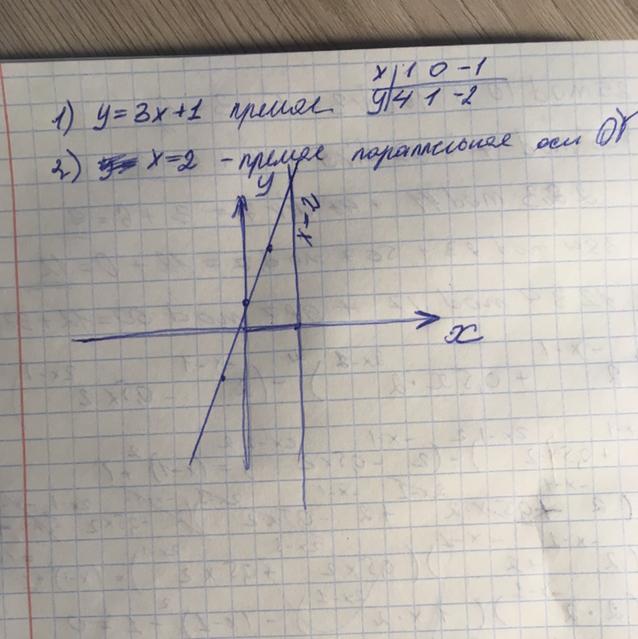 x 1 0 -1
1) y=3x+1 прямая y 4 1 -2
2) x=2 - прямая параллельная оси OY
y
x=2
x